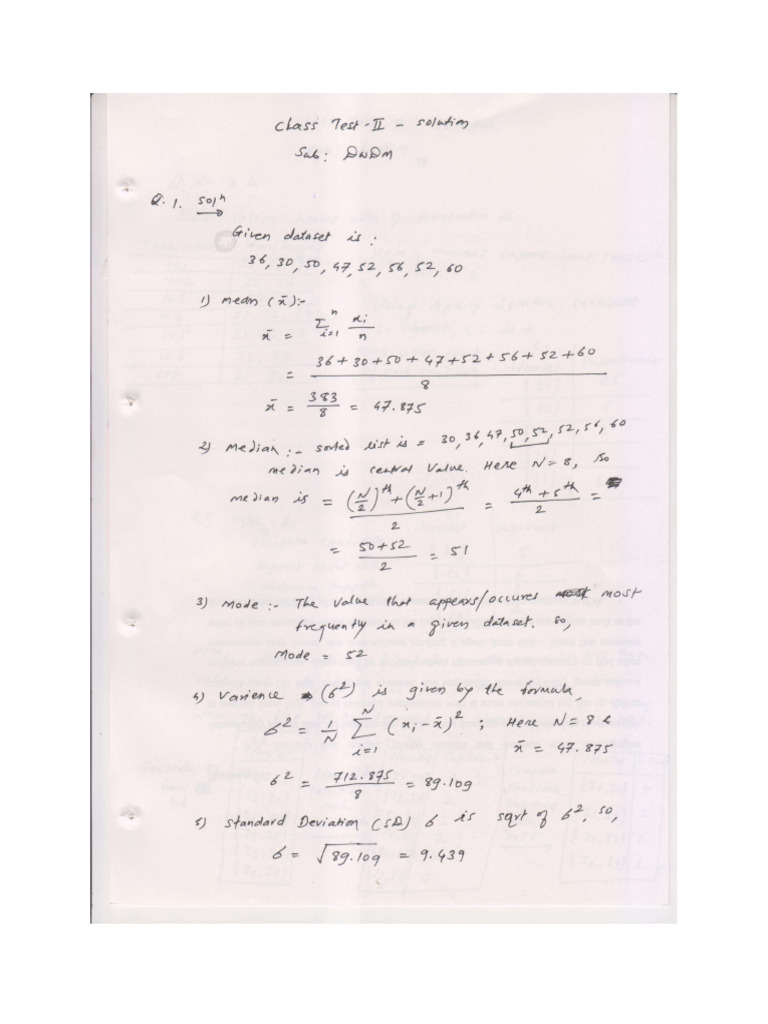 Class Test-II - Solution
Sub: DWDM
Q.1. Solⁿ
Given dataset is:
36, 30, 50, 47, 52, 56, 52, 60
1) mean (x̄):-
x̄ = Σ_{i=1}^{n} xi/n
= (36+30+50+47+52+56+52+60)/8
x̄ = 383/8 = 47.875
2) Median :- sorted list is = 30, 36, 47, 50, 52, 52, 56, 60
median is central value. Here N=8, so
median is = ((N/2)^th + (N/2+1)^th)/2 = (4th + 5th)/2 =
= (50+52)/2 = 51
3) Mode :- The value that appears/occures most
frequently in a given dataset. so,
Mode = 52
4) Varience (σ²) is given by the formula,
σ² = 1/N Σ_{i=1}^{N} (xi - x̄)² ; Here N=8 &
x̄ = 47.875
σ² = 712.875/8 = 89.109
5) Standard Deviation (SD) σ is sqrt of σ², so,
σ = √89.109 = 9.439